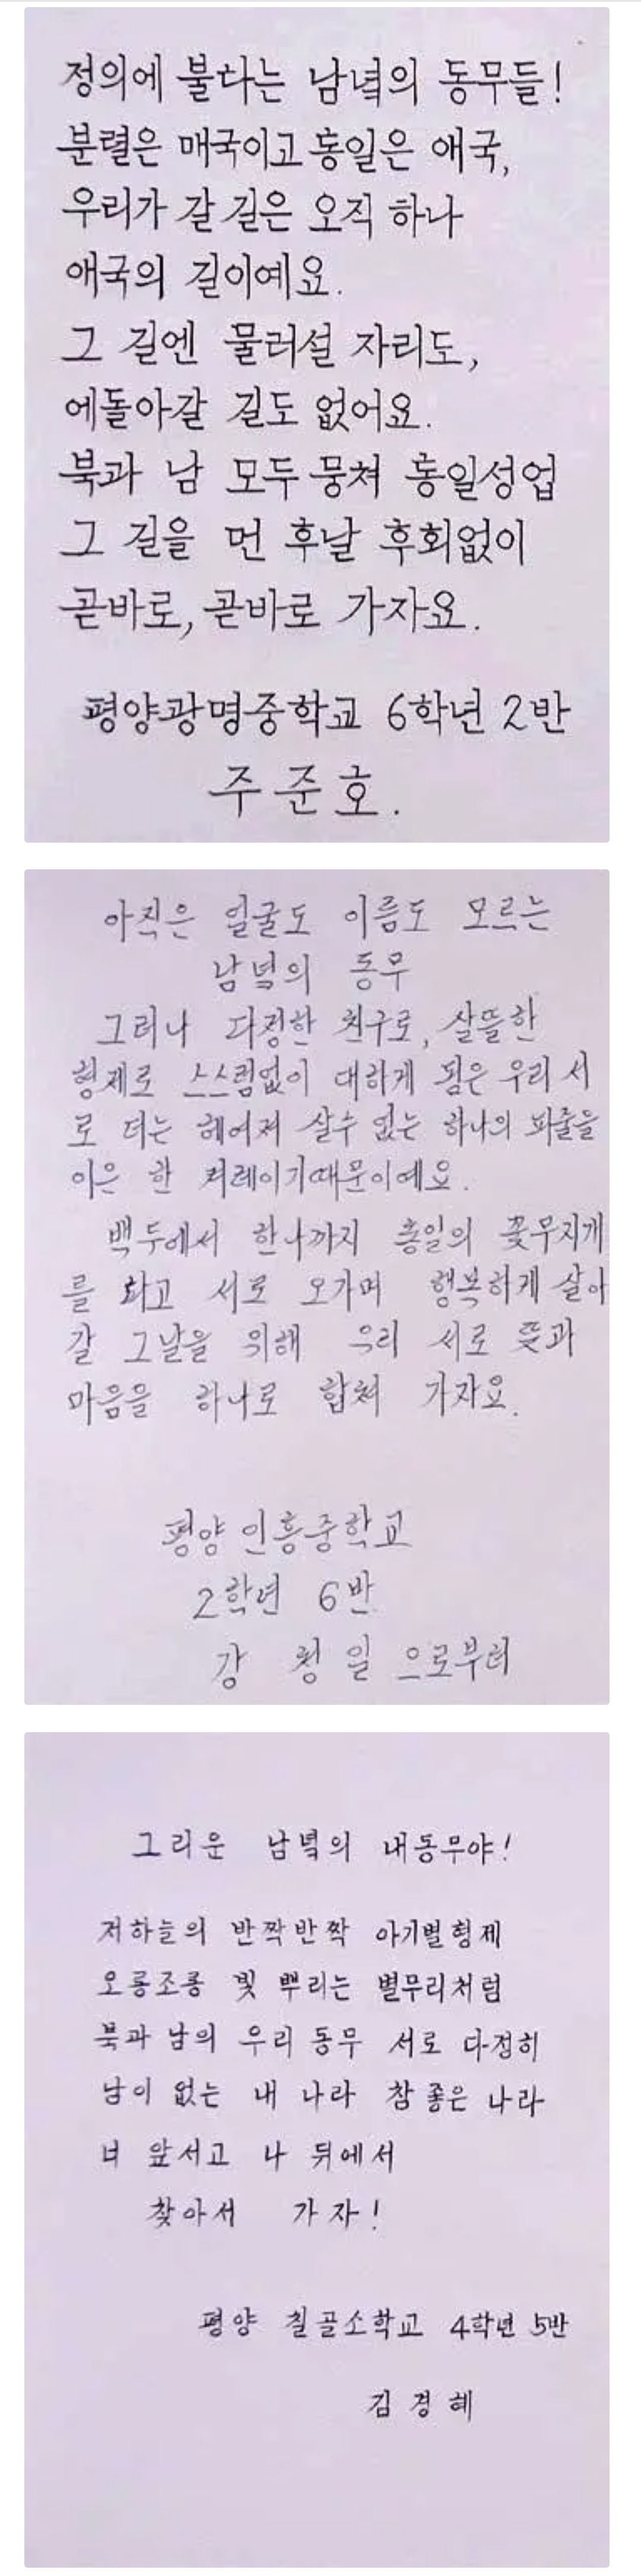 정의에 불타는 남녘의 동무들!
분렬은 매국이고 통일은 애국,
우리가 갈 길은 오직 하나
애국의 길이예요.
그 길엔 물러설 자리도,
에돌아갈 길도 없어요.
북과 남 모두 뭉쳐 통일성업
그 길을 먼 후날 후회없이
곧바로, 곧바로 가자요.
평양광명중학교 6학년 2반
주준호.
아직은 얼굴도 이름도 모르는
남녘의 동무
그러나 다정한 친구로, 살뜰한
형제로 스스럼없이 대하게 됨은 우리 서
로 더는 헤여져 살수 없는 하나의 피줄을
이은 한 겨레이기때문이예요.
백두에서 한나까지 통일의 꽃무지개
를 타고 서로 오가며 행복하게 살아
갈 그날을 위해 우리 서로 뜻과
마음을 하나로 합쳐 가자요.
평양 인흥중학교
2학년 6반
강 일 으로부터
그리운 남녘의 내동무야!
저하늘의 반짝반짝 아기별형제
오롱조롱 빛 뿌리는 별무리처럼
북과 남의 우리 동무 서로 다정히
남이 없는 내 나라 참 좋은 나라
너 앞서고 나 뒤에서
찾아서 가자!
평양 칠골소학교 4학년 5반
김경혜